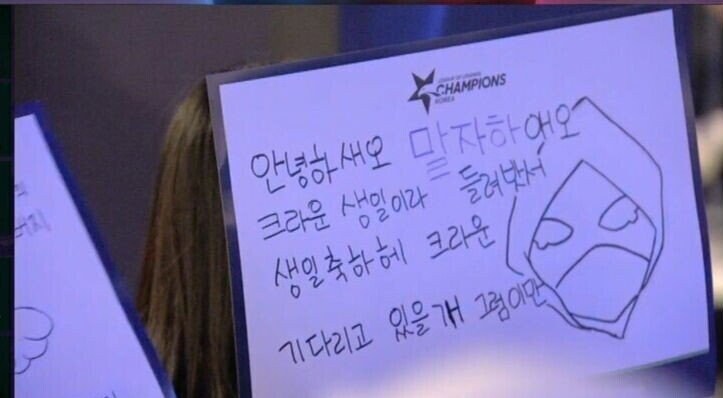 LEAGUE OF LEGENDS
CHAMPIONS
KOREA
안녕하새오 말자하애오
크라운 생일이라 들려봤서
생일축하헤 크라운
기다리고 있을개 그럼이만